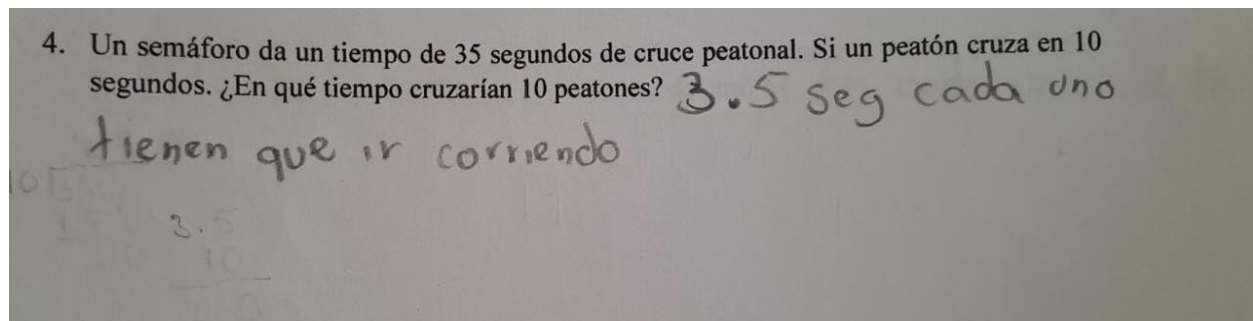 4. Un semáforo da un tiempo de 35 segundos de cruce peatonal. Si un peatón cruza en 10
segundos. ¿En qué tiempo cruzarían 10 peatones? 3.5 seg cada uno
tienen que ir corriendo
10
3.5
10